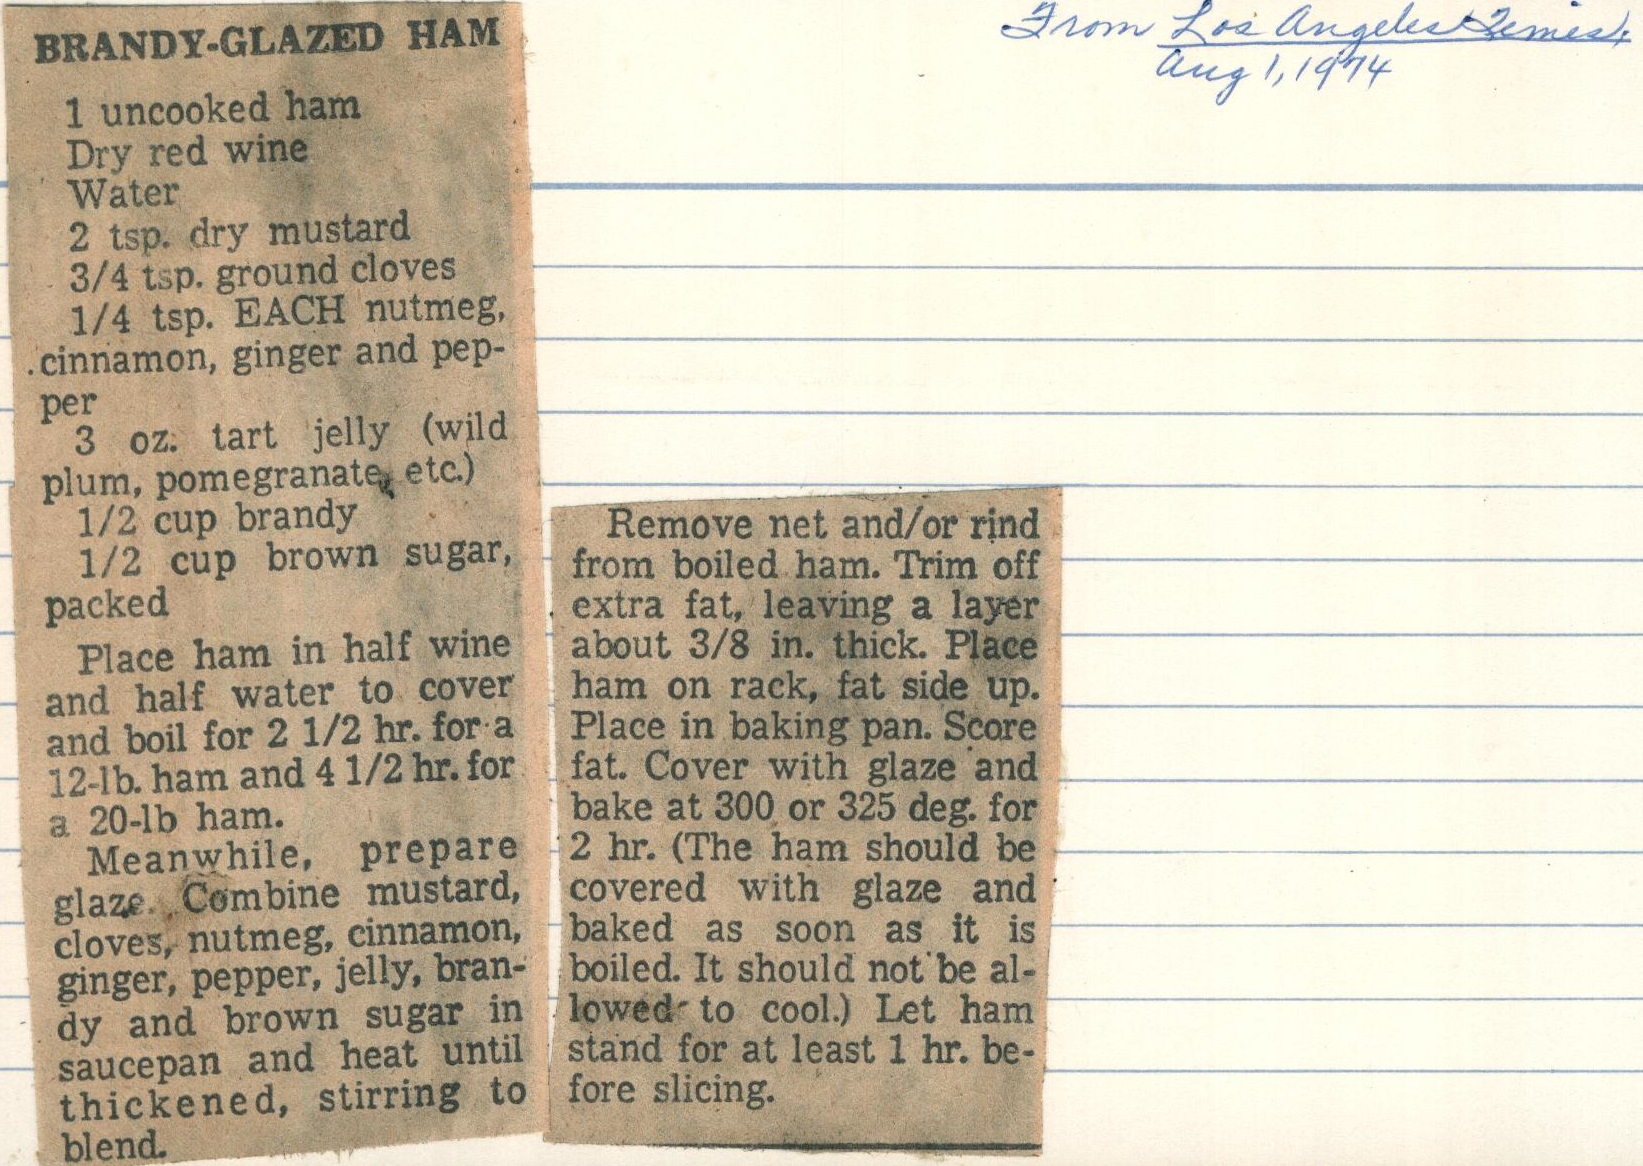 BRANDY-GLAZED HAM
1 uncooked ham
Dry red wine
Water
2 tsp. dry mustard
3/4 tsp. ground cloves
1/4 tsp. EACH nutmeg,
cinnamon, ginger and pep-
per
3 oz. tart jelly (wild
plum, pomegranate, etc.)
1/2 cup brandy
1/2 cup brown sugar,
packed
Place ham in half wine
and half water to cover
and boil for 2 1/2 hr. for a
12-lb. ham and 4 1/2 hr. for
a 20-lb ham.
Meanwhile, prepare
glaze. Combine mustard,
cloves, nutmeg, cinnamon,
ginger, pepper, jelly, bran-
dy and brown sugar in
saucepan and heat until
thickened, stirring to
blend.
Remove net and/or rind
from boiled ham. Trim off
extra fat, leaving a layer
about 3/8 in. thick. Place
ham on rack, fat side up.
Place in baking pan. Score
fat. Cover with glaze and
bake at 300 or 325 deg. for
2 hr. (The ham should be
covered with glaze and
baked as soon as it is
boiled. It should not be al-
lowed to cool.) Let ham
stand for at least 1 hr. be-
fore slicing.
From Los Angeles Times,
Aug 1, 1974